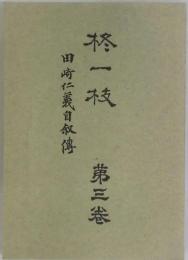 柊一枝
第三巻
田崎仁義自叙傳